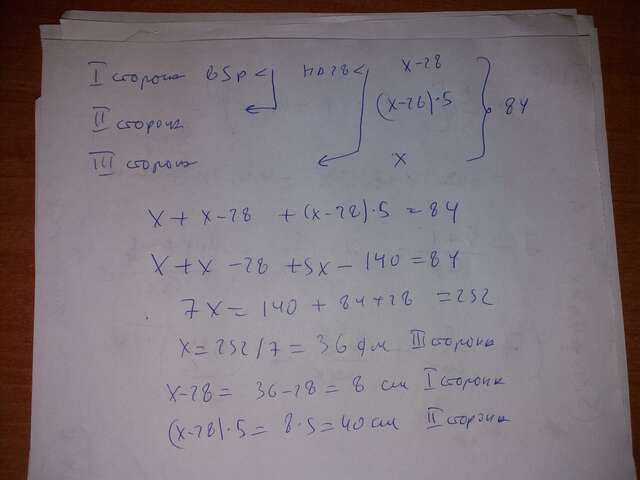 I сторона в 5 р < на 28 < x-28
II сторона (x-28)·5 84
III сторона x
x + x-28 + (x-28)·5 = 84
x + x - 28 + 5x - 140 = 84
7x = 140 + 84 + 28 = 252
x = 252/7 = 36 см III сторона
x-28 = 36-28 = 8 см I сторона
(x-28)·5 = 8·5 = 40 см II сторона